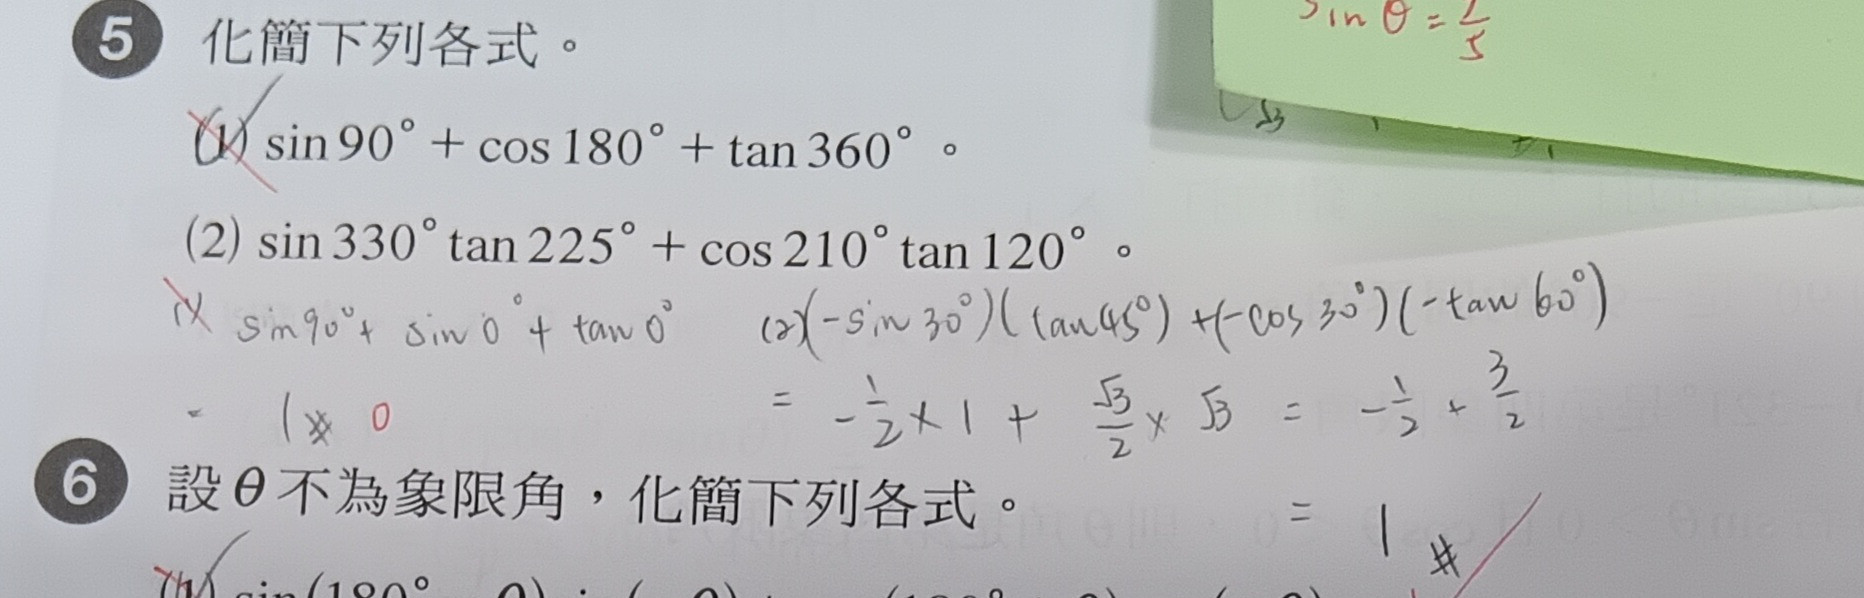 sin θ = 2/5
5 化簡下列各式。
(1) sin 90° + cos 180° + tan 360°。
√3
(2) sin 330° tan 225° + cos 210° tan 120°。
(1) sin 90° + sin 0° + tan 0°
= 1 # 0
(2) (-sin 30°)(tan 45°) + (-cos 30°)(-tan 60°)
= -1/2 × 1 + √3/2 × √3 = -1/2 + 3/2
= 1 #
6 設 θ 不為象限角，化簡下列各式。
(1) sin(180°